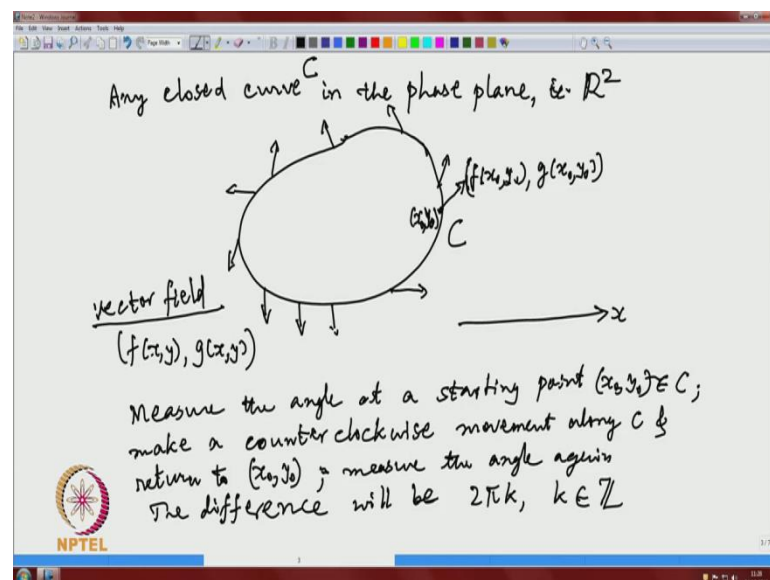 Note2 - Windows Journal
File Edit View Insert Actions Tools Help
Page Width
B I
Any closed curve C in the phase plane, ie. ℝ²
(f(x₀,y₀), g(x₀,y₀))
(x₀,y₀)
C
vector field
(f(x,y), g(x,y))
x
Measure the angle at a starting point (x₀,y₀) ∈ C;
make a counter clockwise movement along C &
return to (x₀,y₀); measure the angle again
The difference will be 2πk, k ∈ ℤ
NPTEL
3
3/7
11:28